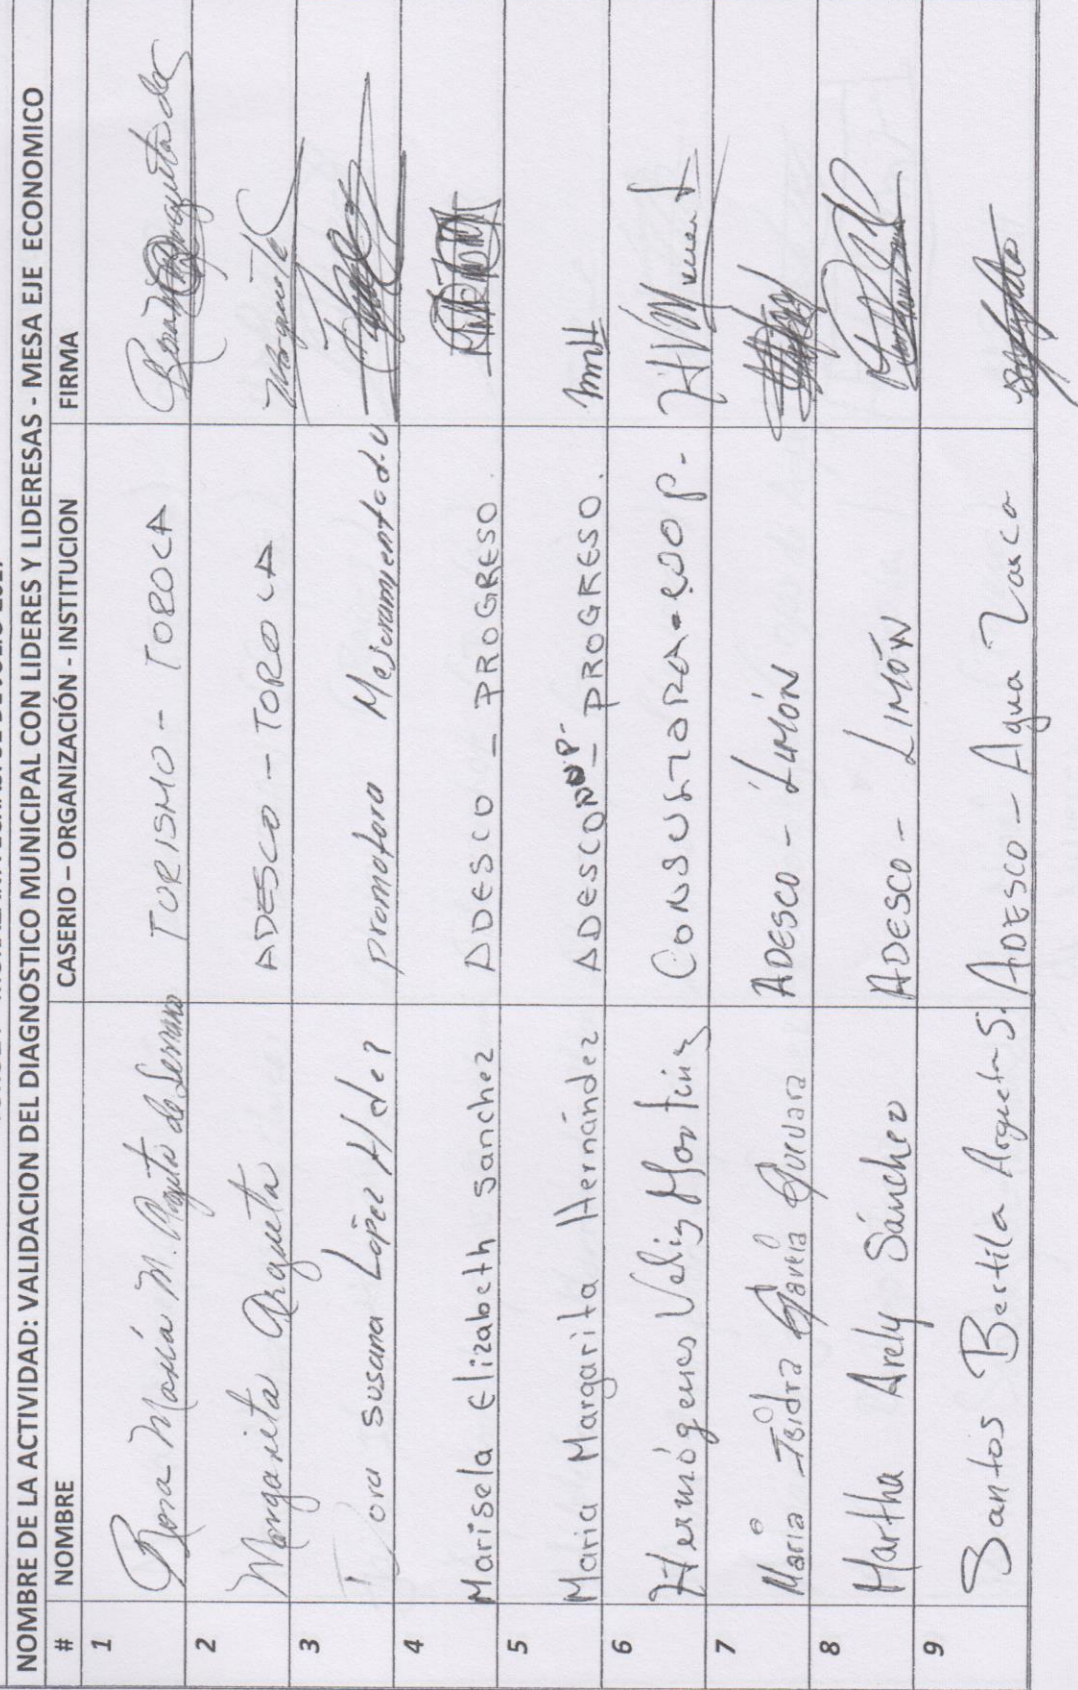 NOMBRE DE LA ACTIVIDAD: VALIDACION DEL DIAGNOSTICO MUNICIPAL CON LIDERES Y LIDERESAS - MESA EJE ECONOMICO
# NOMBRE CASERIO – ORGANIZACIÓN - INSTITUCION FIRMA
1 Rosa María M. Argueta de Serrano TURISMO - TOROLA
2 Margarita Argueta ADESCO - TOROLA
3 Dora Susana López Hdez promotora Mejoramiento d.v
4 Marisela Elizabeth Sanchez ADESCO - PROGRESO.
5 Maria Margarita Hernández ADESCO - PROGRESO. MMH
6 Hermógenes Veliz Martínez CONSULTORA
7 Maria Isidra García Guevara ADESCO - Limón
8 Martha Arely Sánchez ADESCO - LIMÓN
9 Santos Bertila Argueta S. ADESCO - Agua Zarca